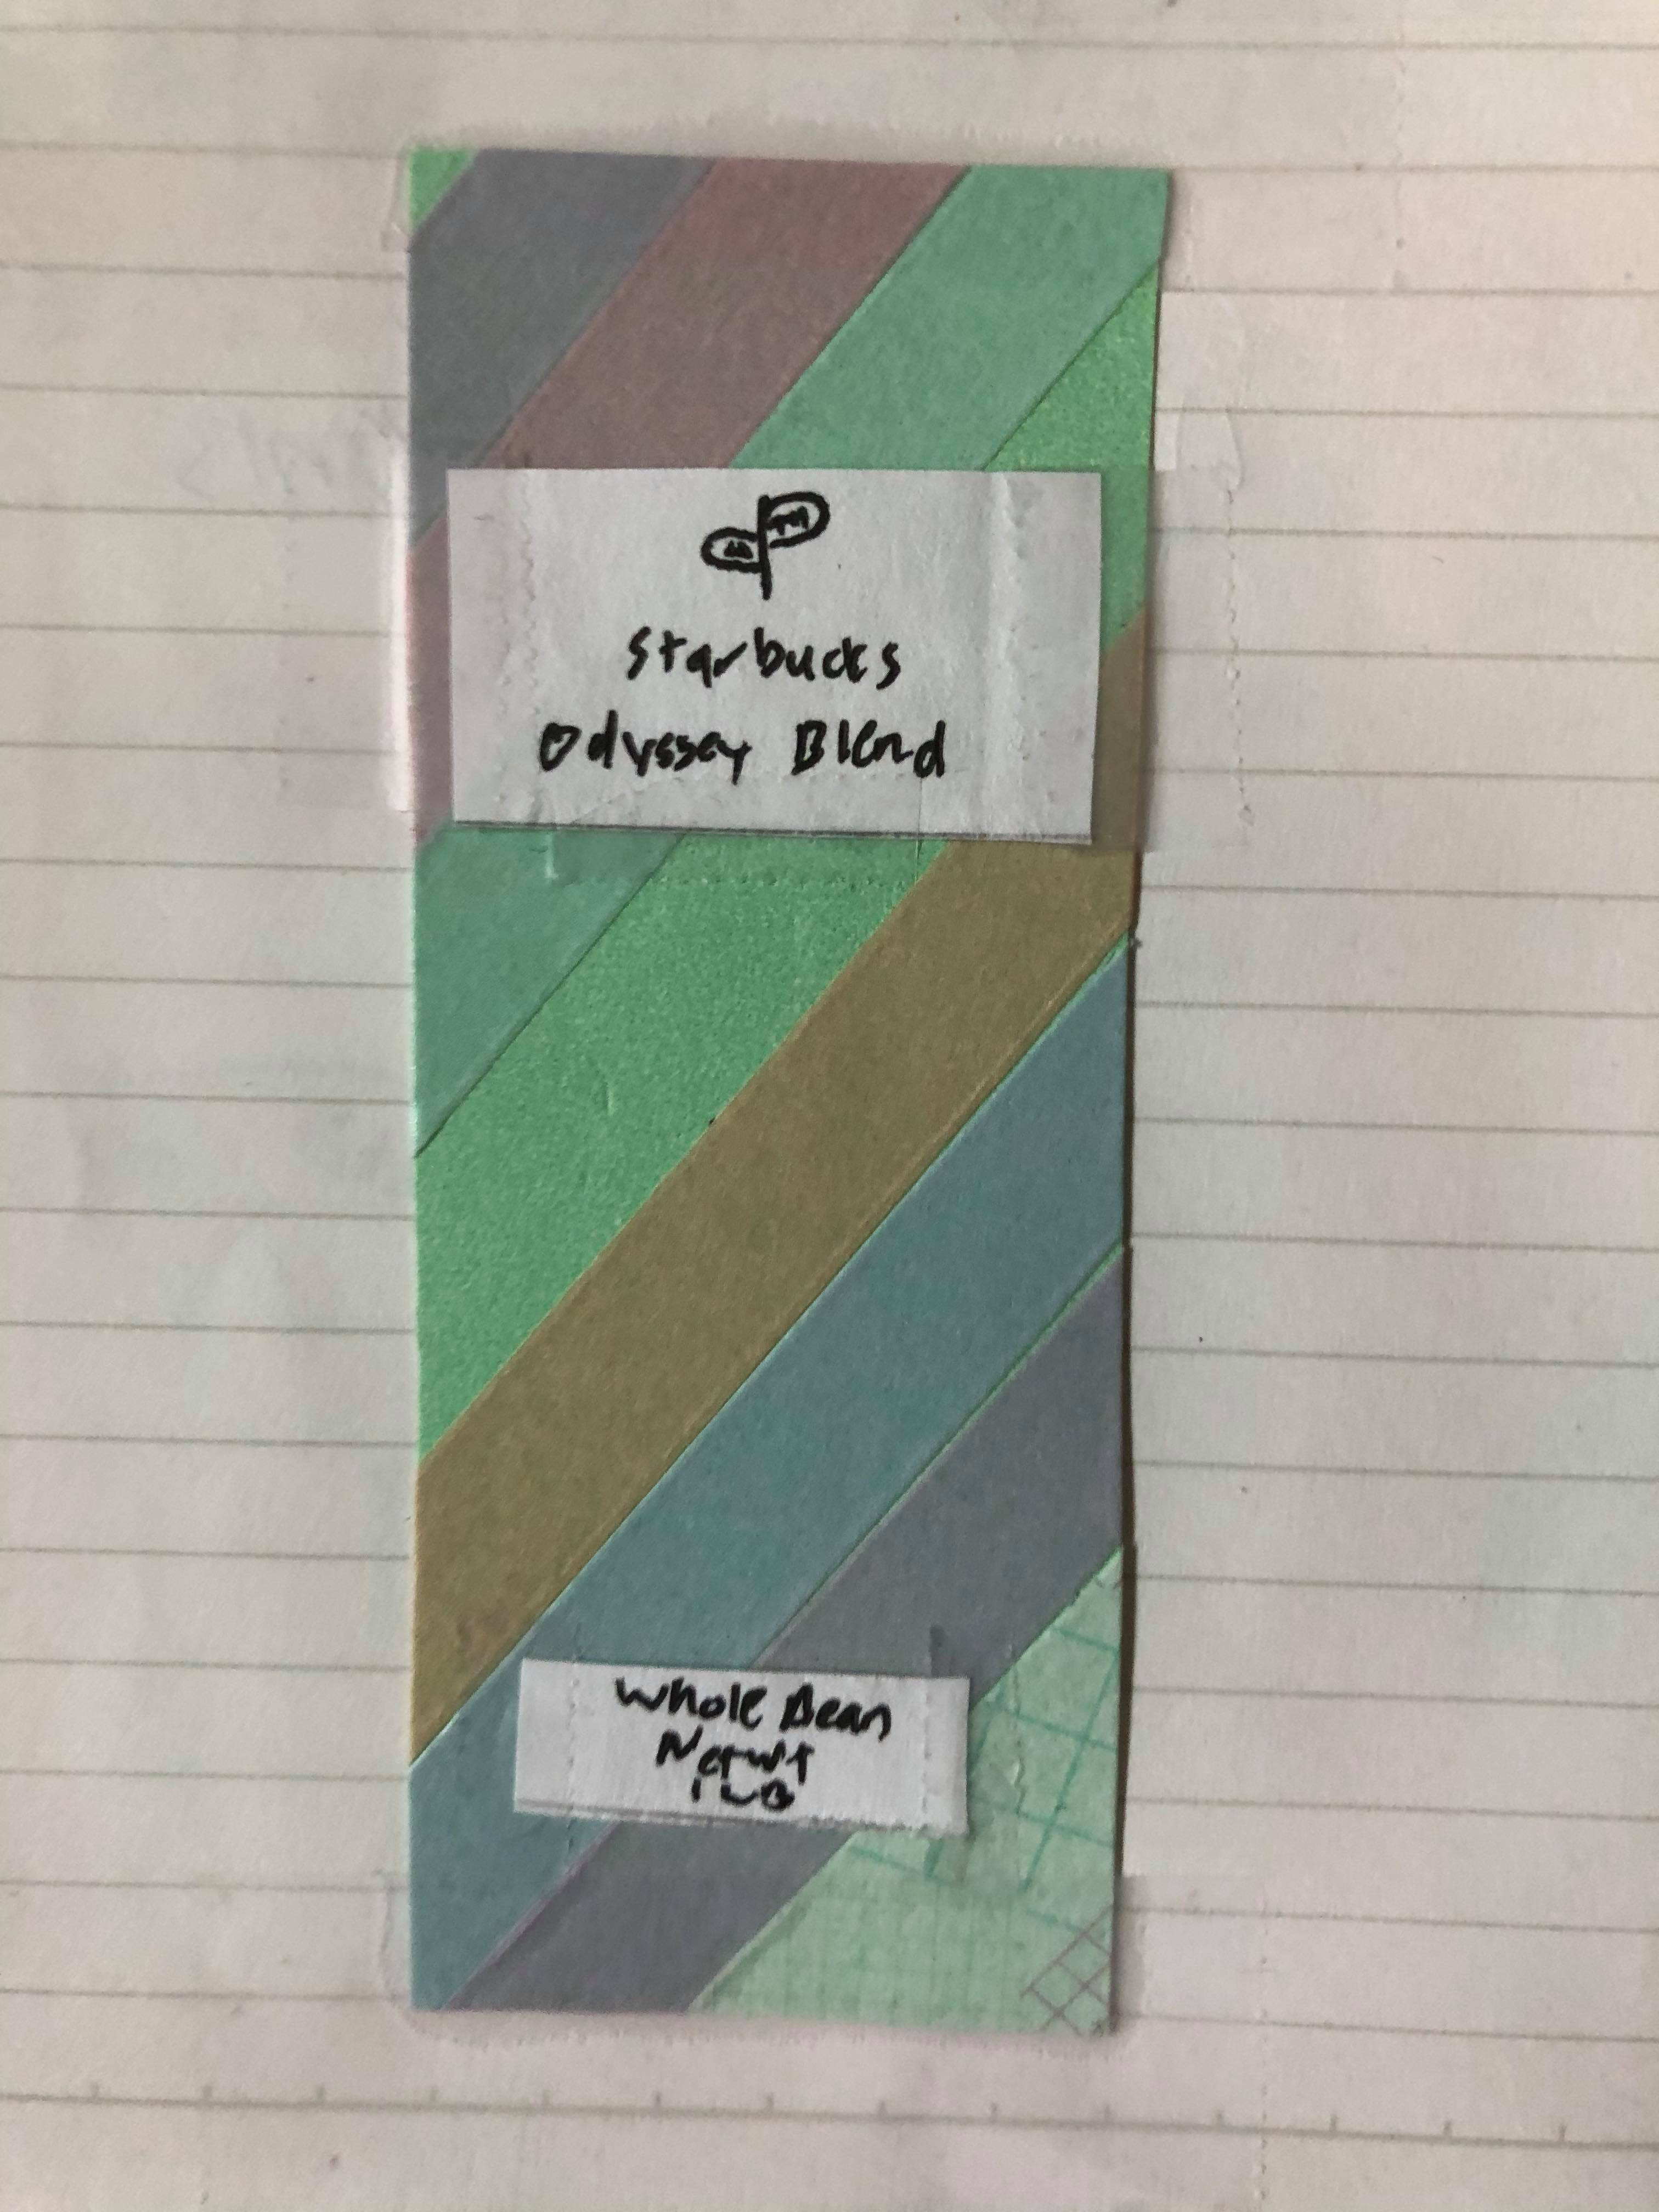 Starbucks
Odyssey Blend
Whole Bean
Net wt
1 LB